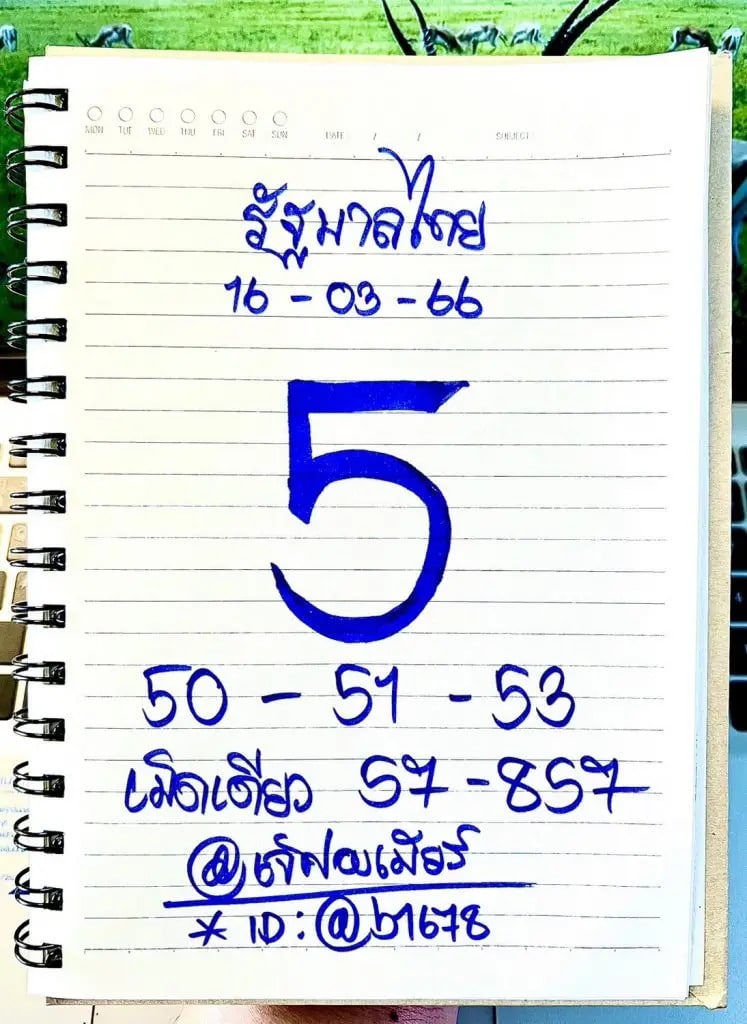 MON TUE WED THU FRI SAT SUN DATE / / SUBJECT
รัฐบาลไทย
16 - 03 - 66
5
50 - 51 - 53
เม็ดเดียว 57 - 857
@เจ๊ฝนเมียร์
* ID: @b1678